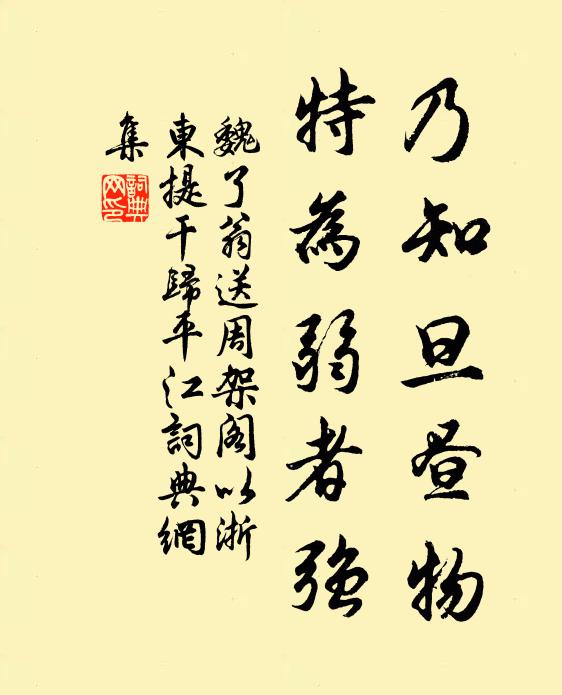 乃知旦昼物
特為弱者強
魏了翁送周架阁以浙
東提干歸平江詞典網
集
詞典
网印